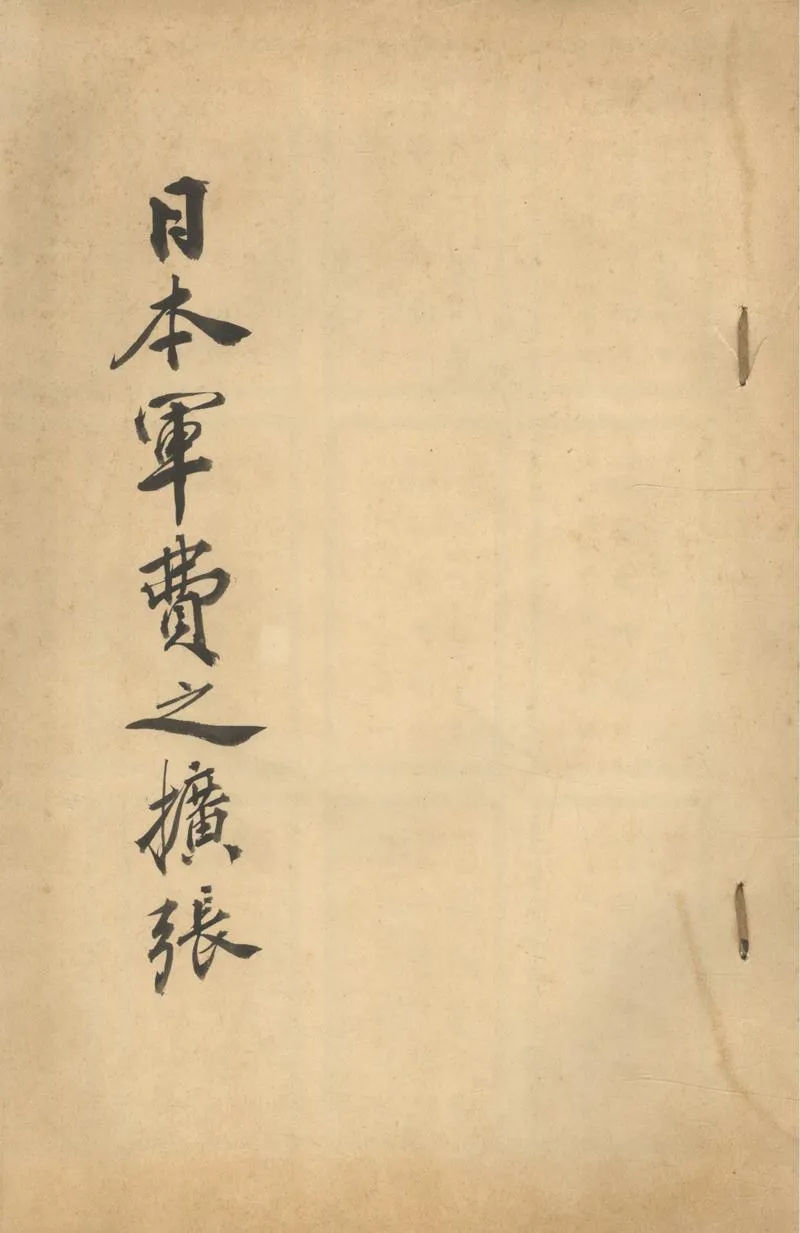 日本軍費之擴張